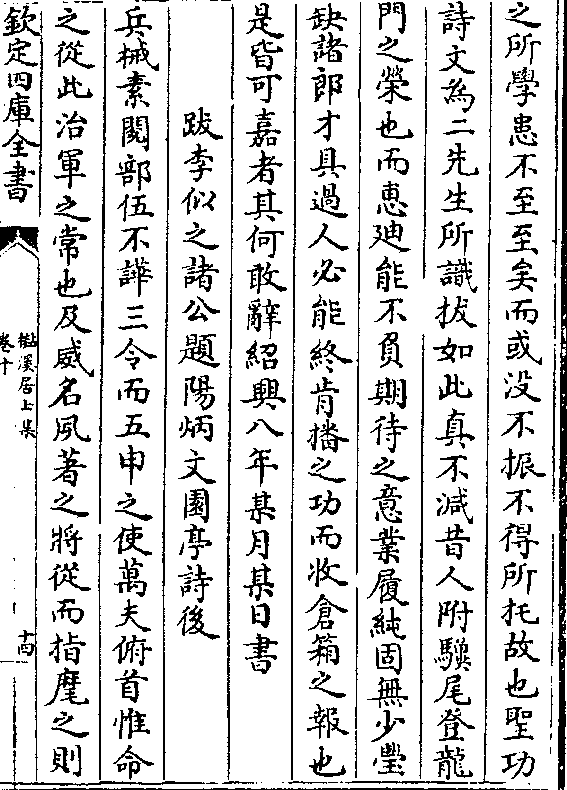 之所學患不至至矣而或没不振不得所托故也聖功
詩文為二先生所識拔如此真不減昔人附驥尾登龍
門之榮也而惠廸能不負期待之意業履純固無少瑩
缺諸郎才具過人必能終肯播之功而收倉箱之報也
是皆可嘉者其何敢辭紹興八年某月某日書
跋李似之諸公題陽炳文園亭詩後
兵械素閱部伍不譁三令而五申之使萬夫俯首惟命
之從此治軍之常也及威名夙著之將從而指麾之則
欽定四庫全書
溪居士集
卷十
十四